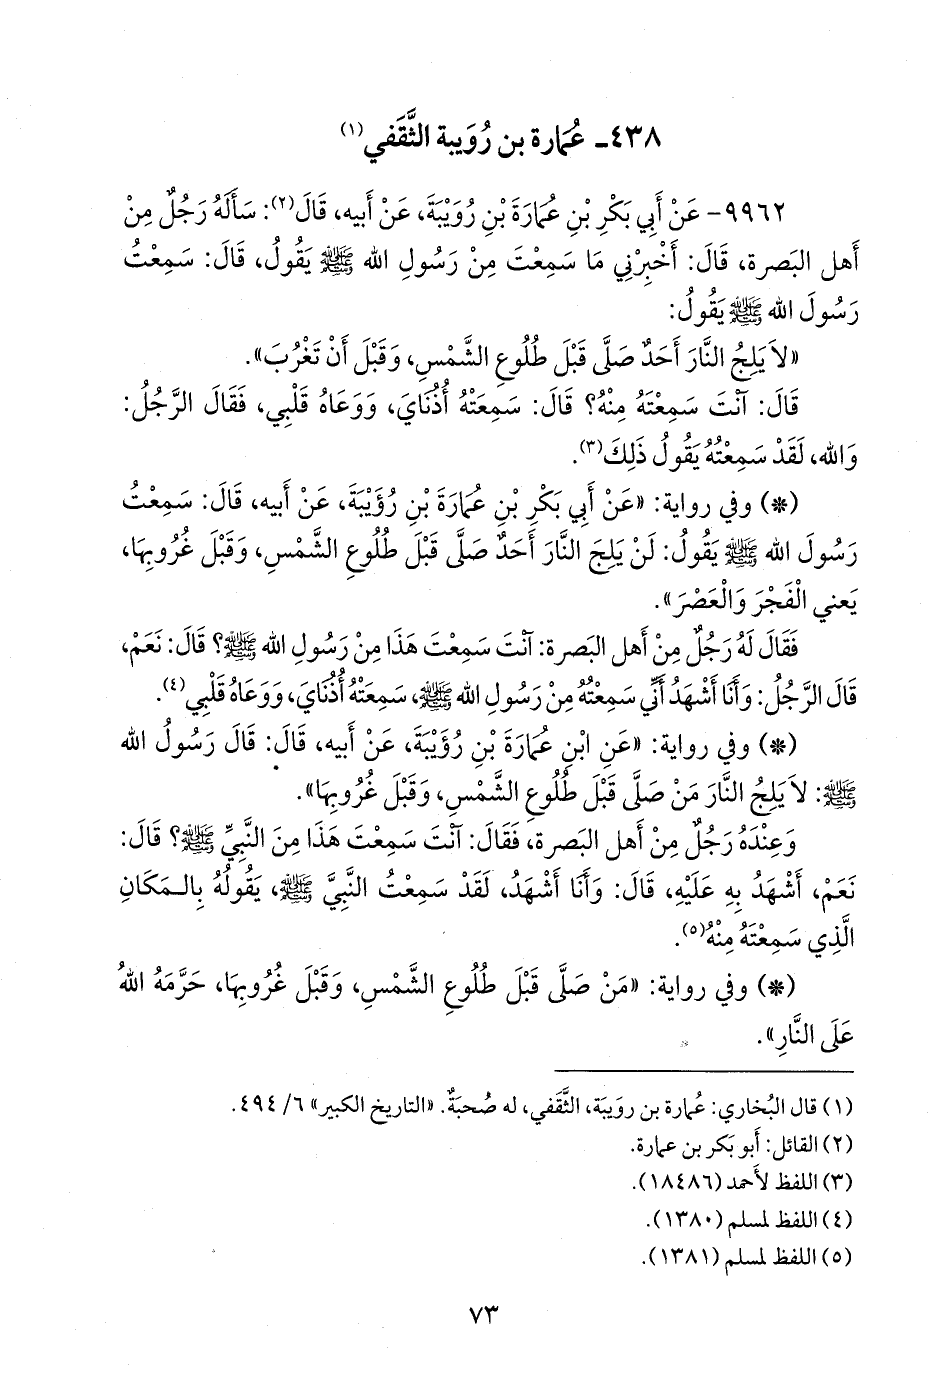 ٤٣٨- عُمارة بن رُوَيبة الثَّقَفي(١)
٩٩٦٢- عَنْ أَبِي بَكْرِ بْنِ عُمَارَةَ بْنِ رُوَيْبَةَ، عَنْ أَبيه، قَالَ(٢): سَأَلَهُ رَجُلٌ مِنْ
أَهل البَصرة، قَالَ: أَخْبِرْنِي مَا سَمِعْتَ مِنْ رَسُولِ الله ﷺ يَقُولُ، قَالَ: سَمِعْتُ
رَسُولَ الله ﷺ يَقُولُ:
«لاَ يَلِجُ النَّارَ أَحَدٌ صَلَّى قَبْلَ طُلُوعِ الشَّمْسِ، وَقَبْلَ أَنْ تَغْرُبَ».
قَالَ: آنْتَ سَمِعْتَهُ مِنْهُ؟ قَالَ: سَمِعَتْهُ أُذُنَايَ، وَوَعَاهُ قَلْبِي، فَقَالَ الرَّجُلُ:
وَالله، لَقَدْ سَمِعْتُهُ يَقُولُ ذَلِكَ(٣).
(*) وفي رواية: «عَنْ أَبِي بَكْرِ بْنِ عُمَارَةَ بْنِ رُؤَيْبَةَ، عَنْ أَبيه، قَالَ: سَمِعْتُ
رَسُولَ الله ﷺ يَقُولُ: لَنْ يَلِجَ النَّارَ أَحَدٌ صَلَّى قَبْلَ طُلُوعِ الشَّمْسِ، وَقَبْلَ غُرُوبِهَا،
يَعني الْفَجْرَ وَالْعَصْرَ».
فَقَالَ لَهُ رَجُلٌ مِنْ أَهل البَصرة: آنْتَ سَمِعْتَ هَذَا مِنْ رَسُولِ الله ﷺ؟ قَالَ: نَعَمْ،
قَالَ الرَّجُلُ: وَأَنَا أَشْهَدُ أَنِّي سَمِعْتُهُ مِنْ رَسُولِ الله ﷺ، سَمِعَتْهُ أُذُنَايَ، وَوَعَاهُ قَلْبِي(٤).
(*) وفي رواية: «عَنِ ابْنِ عُمَارَةَ بْنِ رُؤَيْبَةَ، عَنْ أَبيه، قَالَ: قَالَ رَسُولُ الله
ﷺ: لاَ يَلِجُ النَّارَ مَنْ صَلَّى قَبْلَ طُلُوعِ الشَّمْسِ، وَقَبْلَ غُرُوبِهَا».
وَعِنْدَهُ رَجُلٌ مِنْ أَهل البَصرة، فَقَالَ: آنْتَ سَمِعْتَ هَذَا مِنَ النَّبِيِّ ﷺ؟ قَالَ:
نَعَمْ، أَشْهَدُ بِهِ عَلَيْهِ، قَالَ: وَأَنَا أَشْهَدُ، لَقَدْ سَمِعْتُ النَّبِيَّ ﷺ، يَقُولُهُ بِالـمَكَانِ
الَّذِي سَمِعْتَهُ مِنْهُ(٥).
(*) وفي رواية: «مَنْ صَلَّى قَبْلَ طُلُوعِ الشَّمْسِ، وَقَبْلَ غُرُوبِهَا، حَرَّمَهُ اللهُ
عَلَى النَّارِ».
(١) قال البُخاري: عُمارة بن رويبة، الثَّقَفي، له صُحبَةٌ. «التاريخ الكبير» ٦/ ٤٩٤.
(٢) القائل: أَبو بَكر بن عمارة.
(٣) اللفظ لأَحمد (١٨٤٨٦).
(٤) اللفظ لمسلم (١٣٨٠).
(٥) اللفظ لمسلم (١٣٨١).
٧٣